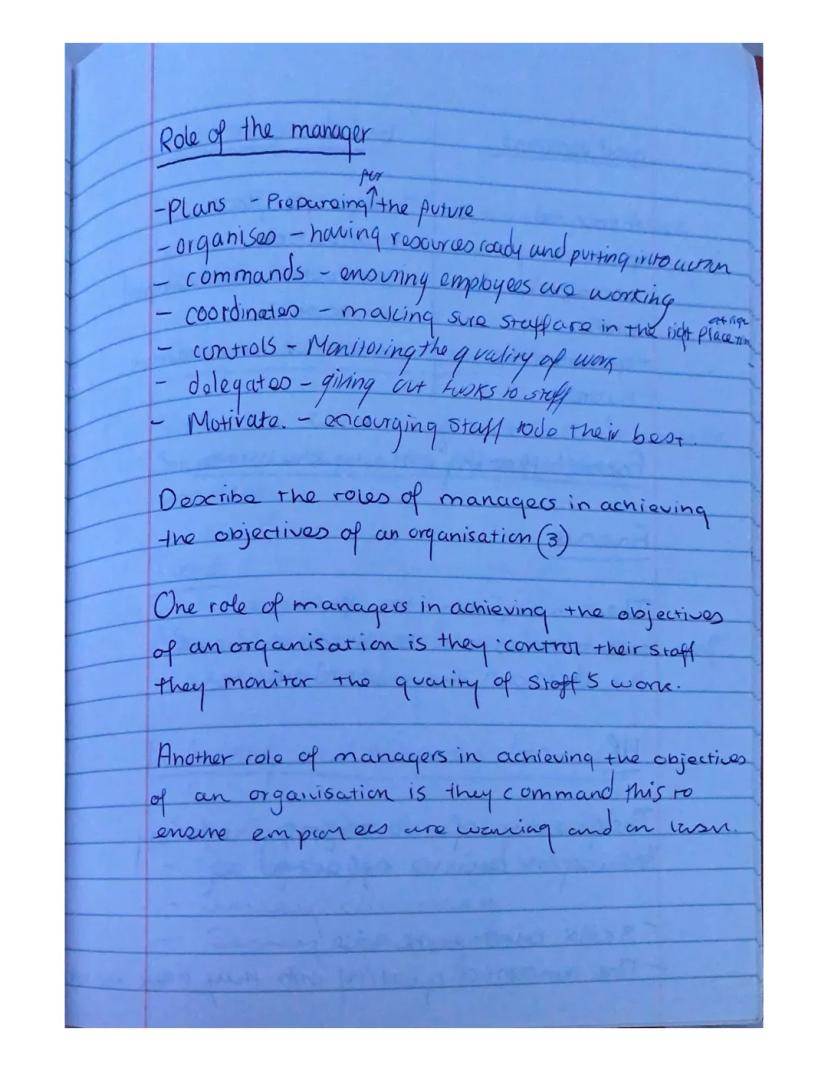 Role of the manager
-Plans - Preparaing for the future
- organises - having resources ready and putting into action
- commands - ensuring employees are working
- coordinates - making sure staff are in the right place at right time
- controls - Monitoring the quality of work
- delegates - giving out tasks to staff
- Motivate. - encourging staff to do their best.
Describe the roles of managers in achieving
the objectives of an organisation (3)
One role of managers in achieving the objectives
of an organisation is they control their staff
they monitor the quality of staff's work.
Another role of managers in achieving the objectives
of an organisation is they command this to
ensure employees are working and on